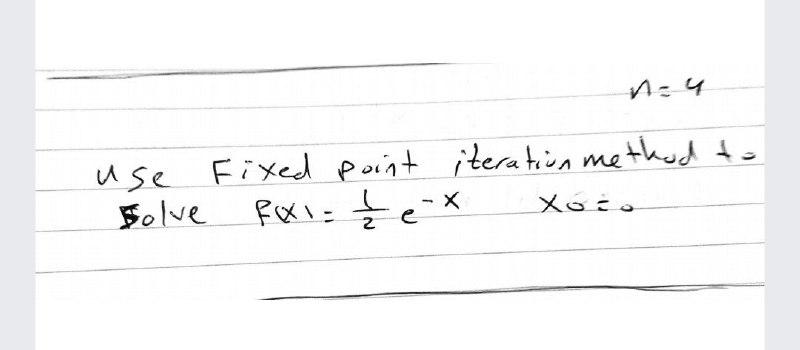 n=4
use Fixed point iteration method to
Solve F(x)= 1/2 e^-x x0=0